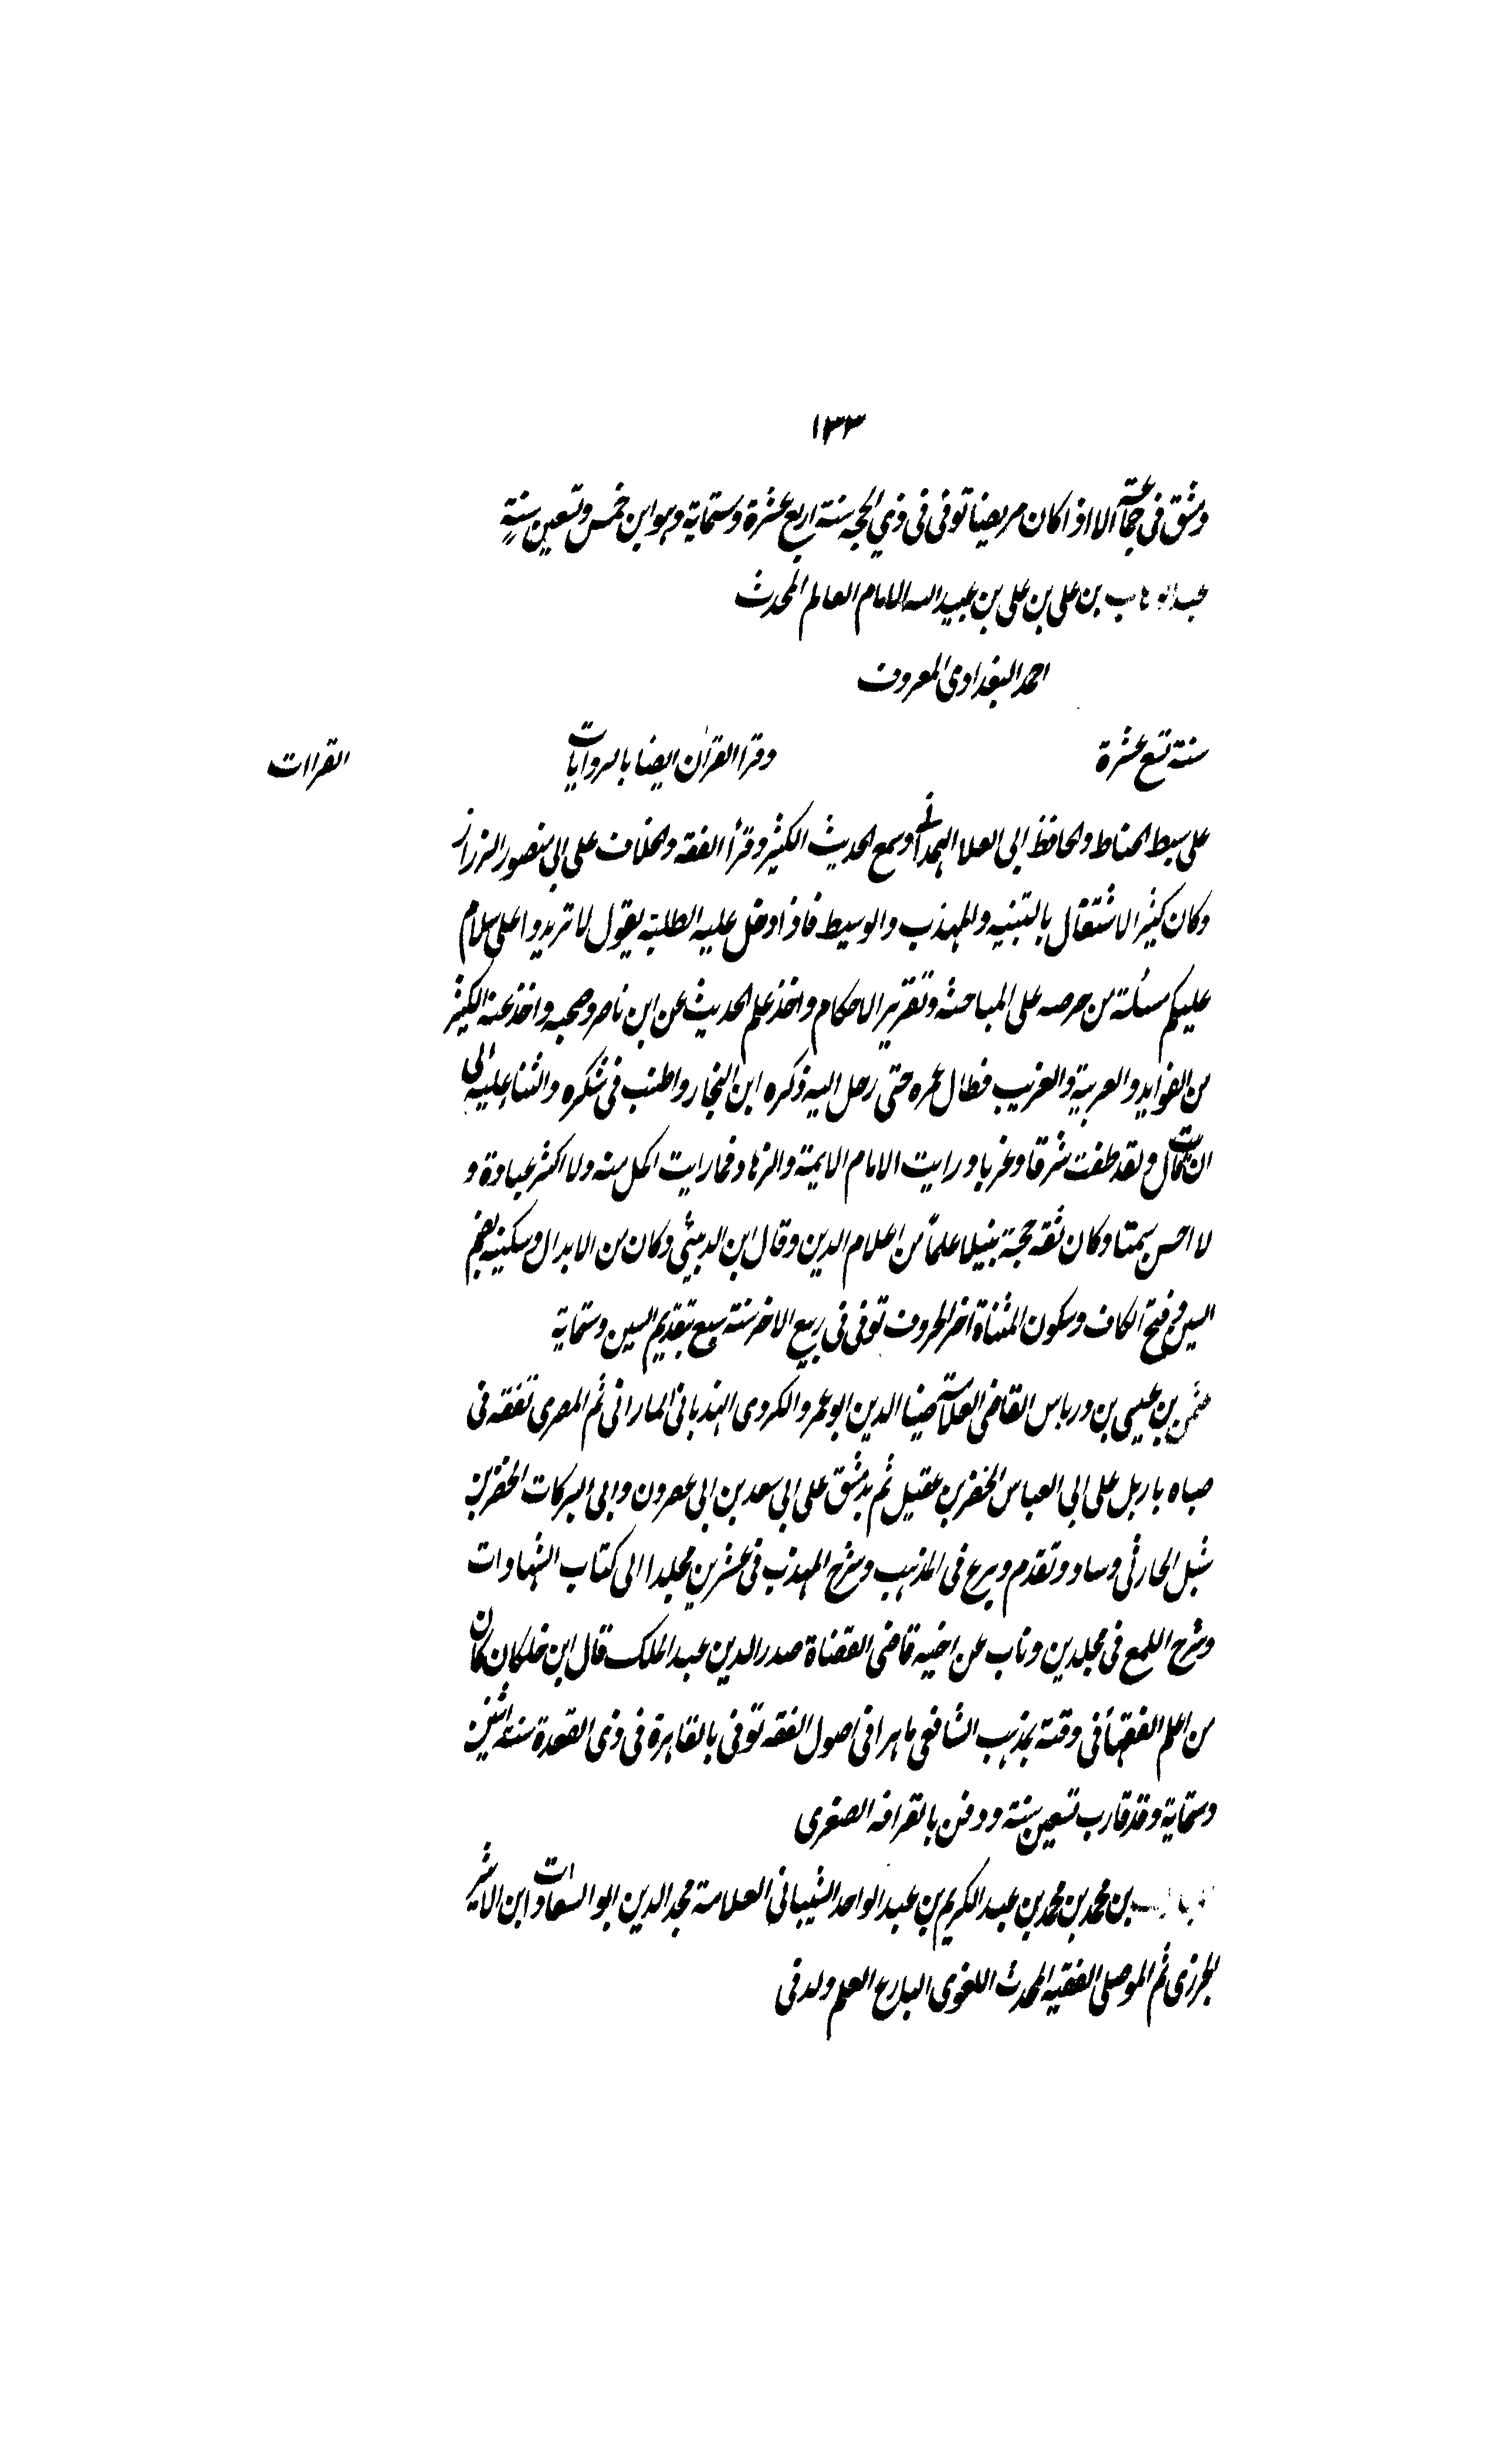 ١٣٣
دمشق فى جماعة الا اذا كان مريضا توفى فى ذي الحجه سنة اربع عشرة وستماية وهو ابن خمس وتسعين سنةٍ
عبد الوهاب بن على بن على بن عبيد الله الامام العالم المحدث
احمد البغدادى المعروف
سنة تسع عشرة وقرا القرآن ايضا بالروايات القراات
على سبط الخياط والحافظ ابى العلا الهمدانى وسمع الحديث الكثير وقرأ الفقه والخلاف على ابى منصور الرزاز
وكان كثير الاشتغال بالتنبيه والمهذب والوسيط فاذا دخل عليه الطلبة يقول لا تزيدوا على سلام
عليكم مسئلة من حرصه على المباحثه وتقرير الاحكام واخذ علم الحديث عن ابن ناصر وصحبه واخذ عنه الكثير
من الفوايد والعربية والغريب فطال عمره حتى رحل اليه ذكره ابن النجار واطنب فى شكره والثنا عليه الى
ان قال ولقد طفت شرقا وغربا ورايت الامام الايمة والزهاد فما رايت اكمل منه ولا اكثر عبادة و
لا احسن سمتا وكان ثقه حجة نبيلا علماً من اعلام الدين وقال ابن الدبيثى وكان من الابدال وسكينه بضم
السين وفتح الكاف وسكون المثناة اخر الحروف توفى فى ربيع الاخر سنة سبع بتقديم السين وستماية
عثمن بن عيسى بن درباس القاضى العلامة ضيا الدين ابو عمرو الكردى الهذبانى المارانى ثم المصرى تفقه فى
صباه باربل على ابى العباس الخضر بن عقيل ثم بدمشق على ابى سعد بن ابى عصرون وابى البركات الخضر بن
شبل الحارثى وساد وتقدم وبرع فى المذهب وشرح المهذب فى عشرين مجلدا الى كتاب الشهادات
وشرح اللمع فى مجلدين وناب عن اخيه قاضى القضاة صدر الدين عبد الملك قال ابن خلكان كان
من اعلم الفقهاء فى وقته بمذهب الشافعى ماهرا فى اصول الفقه توفى بالقاهرة فى ذى القعدة سنة اثنين
وستماية وقد قارب تسعين سنة ودفن بالقرافه الصغرى
بن محمد بن محمد بن عبد الكريم بن عبد الواحد الشيبانى العلامة مجد الدين ابو السعادات ابن الاثير
الجزرى ثم الموصلى الفقيه المحدث اللغوى البارع العلم ولد فى